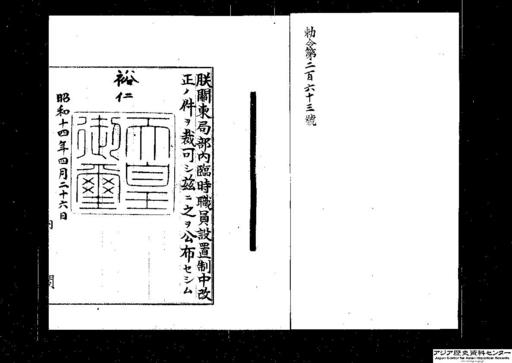 勅令第二百六十三號
朕關東局部內臨時職員設置制中改
正ノ件ヲ裁可シ茲ニ之ヲ公布セシム
裕仁
天皇
御璽
昭和十四年四月二十六日
内閣
アジア歴史資料センター
Japan Center for Asian Historical Records